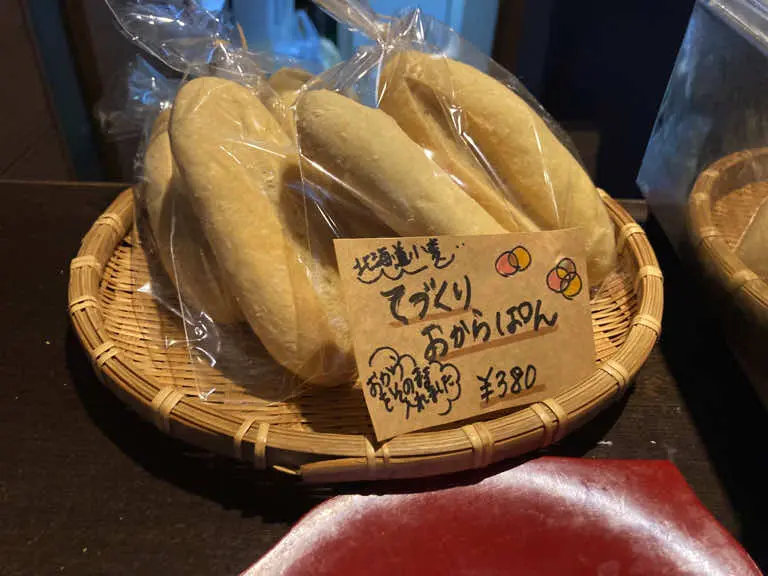 北海道小麦
てづくり
おからぱん
おから
入れました
¥380